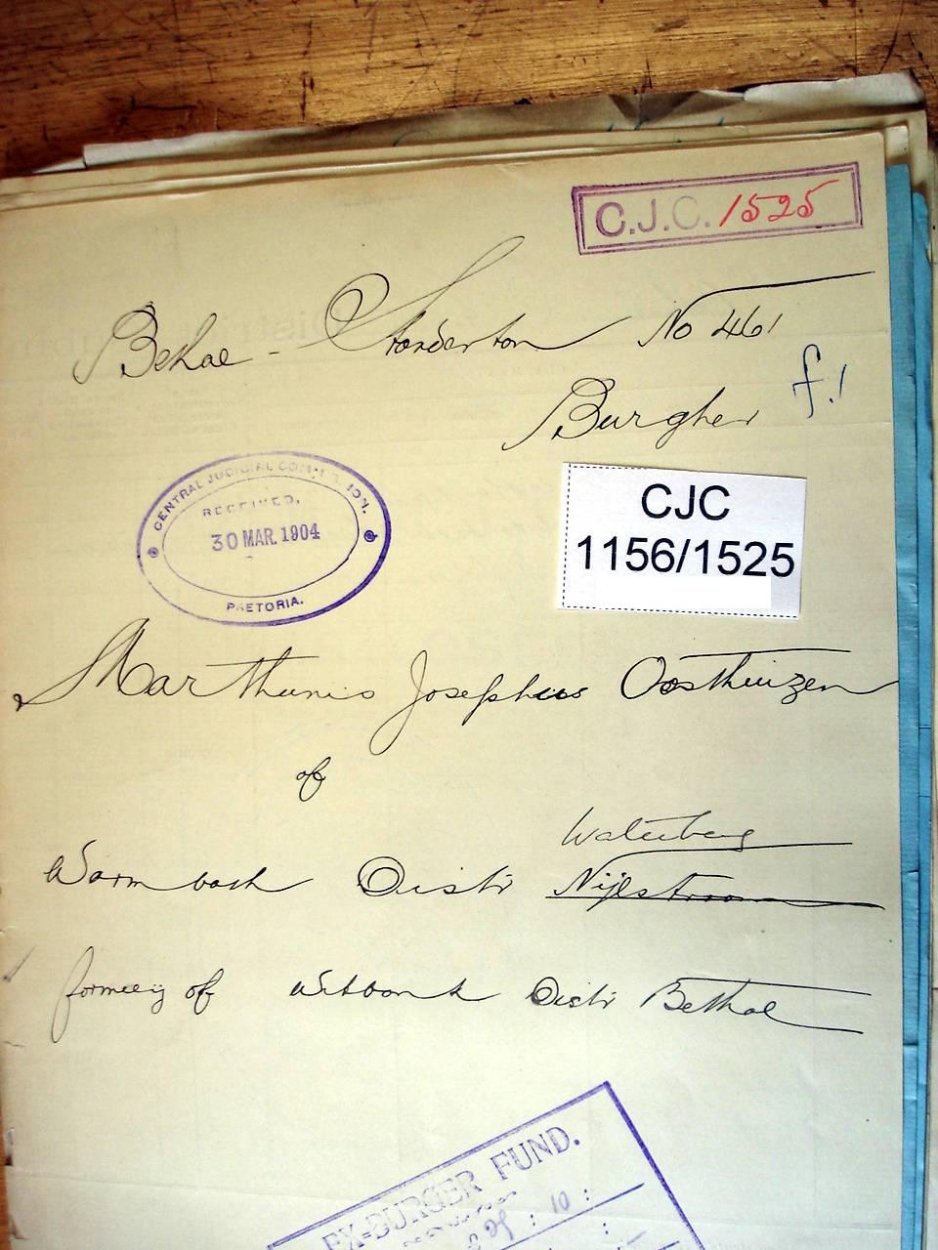 C.J.C. 1525
Bethal - Standerton No 461
Burgher f.1
CENTRAL JUDICIAL COMMISSION.
RECEIVED.
30 MAR. 1904
PRETORIA.
CJC
1156/1525
Marthunis Josephus Oosthuizen
of
Waterberg
Warmbath Distr Nijlstroom
formerly of Witbank Distr Bethal
EX-BURGER FUND.
: 10 :